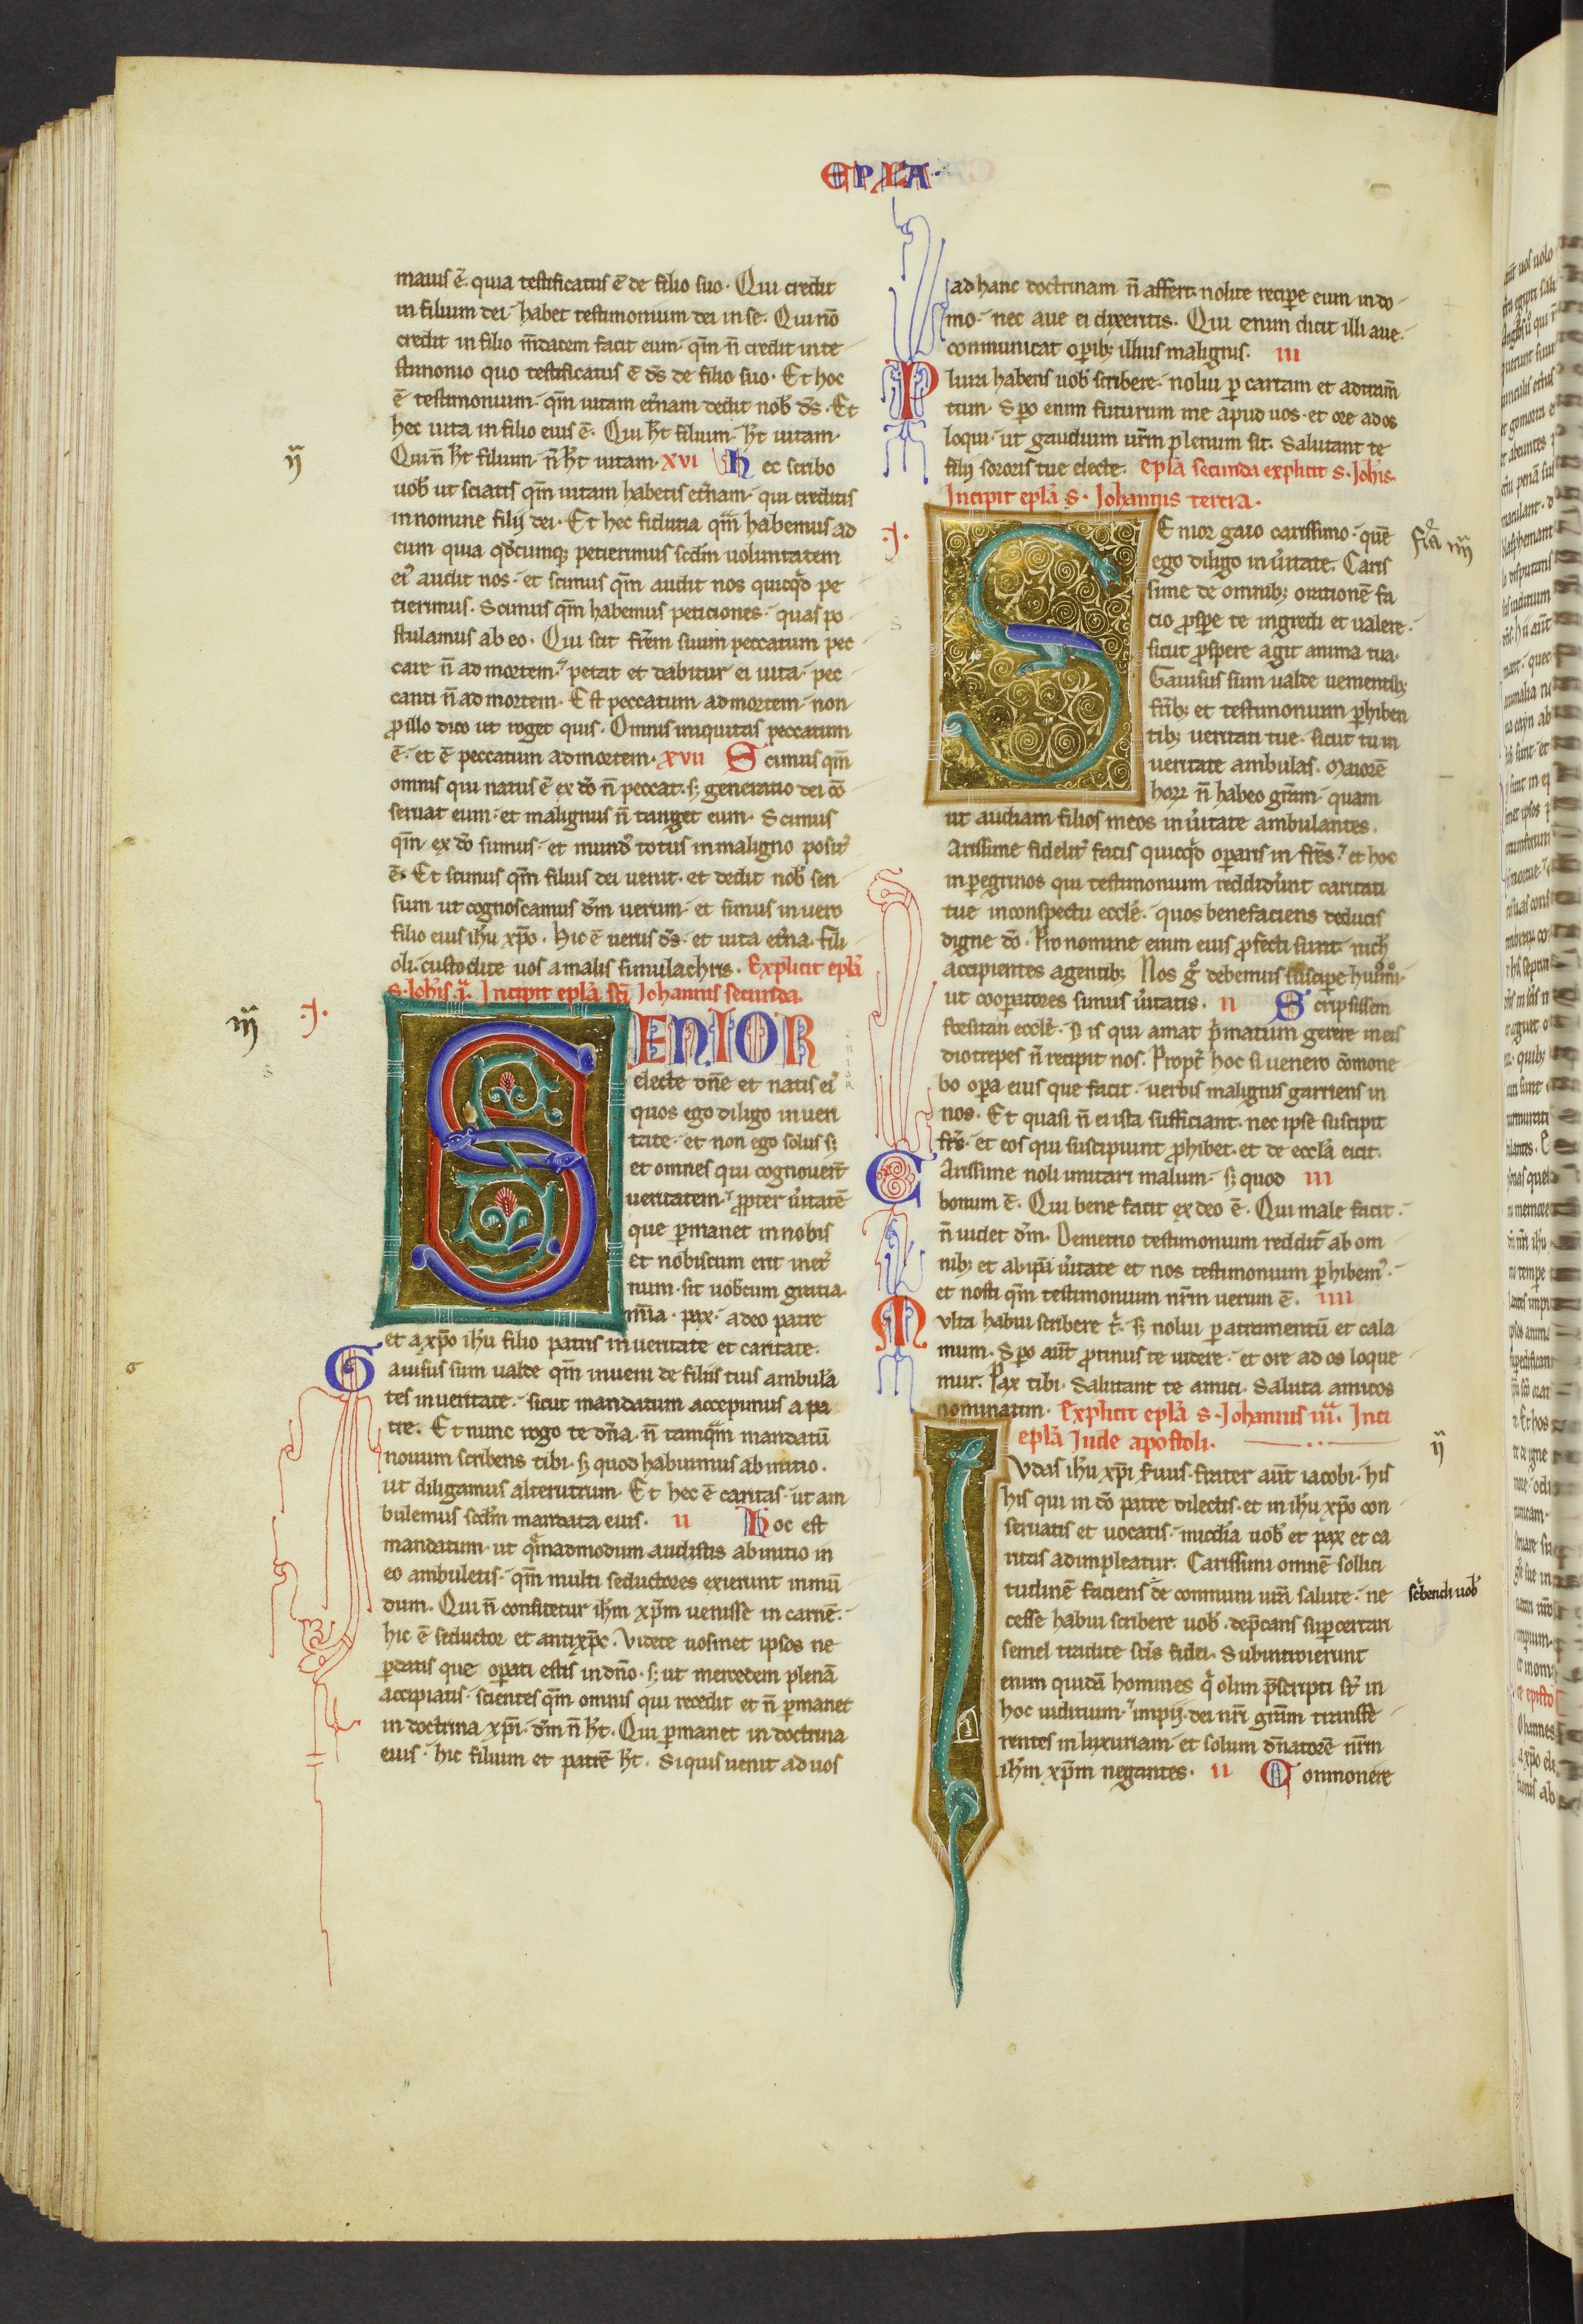 EPLA
maius ē. quia testificatus ē de filio suo. Qui credit
in filium dei. habet testimonium dei in se. Qui nō
credit in filio m̄dacem facit eum. qm̄ n̄ credit in te
stimonio quo testificatus ē ds̄ de filio suo. Et hoc
ē testimonium. qm̄ uitam et̄nam dedit nob̄ ds̄. Et
hec uita in filio eius ē. Qui ht̄ filium. ht̄ uitam.
Qui n̄ ht̄ filium. n̄ ht̄ uitam. XVI Hec scribo
uob̄ ut sciatis qm̄ uitam habetis et̄nam. qui creditis
in nomine filij dei. Et hec fiducia qm̄ habemus ad
eum quia qdcumq; petierimus scdm̄ uoluntatem
ei' audit nos. et scimus qm̄ audit nos quicqd pe
tierimus. Scimus qm̄ habemus peticiones. quas po
stulamus ab eo. Qui scit frēm suum peccatum pec
care n̄ ad mortem. petat et dabitur ei uita. pec
canti n̄ ad mortem. Est peccatum ad mortem. non
ꝓ illo dico ut roget quis. Omnis iniquitas peccatum
ē. et ē peccatum ad mortem. XVII Scimus qm̄
omnis qui natus ē ex dō n̄ peccat. s; generatio dei cō
seruat eum. et malignus n̄ tanget eum. Scimus
qm̄ ex dō sumus. et mund' totus in maligno posit'
ē. Et scimus qm̄ filius dei uenit. et dedit nob̄ sen
sum ut cognoscamus dm̄ uerum. et simus in uero
filio eius ihu xp̄o. Hic ē uerus ds̄. et uita et̄na. fili
oli custodite uos a malis simulachris. Explicit epl̄a
S. Ioh̄is .I. Incipit epl̄a sc̄i Iohannis secunda.
SENIOR
electe dn̄e et natis ei'
quos ego diligo in ueri
tate. et non ego solus s;
et omnes qui cognouer̄t
ueritatem. ꝓpter ūitatē
que ꝑmanet in nobis
et nobiscum erit in et̄
num. sit uobcum gratia.
mīa. pax. a deo patre
et a xp̄o ihu filio patris in ueritate et caritate.
Gauisus sum ualde qm̄ inueni de filiis tuis ambulā
tes in ueritate. sicut mandatum accepimus a pa
tre. Et nunc rogo te dn̄a. n̄ tamqm̄ mandatū
nouum scribens tibi. s; quod habuimus ab initio.
ut diligamus alterutrum. Et hec ē caritas. ut am
bulemus scdm̄ mandata eius. II Hoc est
mandatum. ut qmadmodum audistis ab initio in
eo ambuletis. qm̄ multi seductores exierunt in mū
dum. Qui n̄ confitetur ihm̄ xp̄m uenisse in carnē.
hic ē seductor et antixp̄c. Videte uosmet ipsos ne
ꝑdatis que oꝑati estis in dn̄o. s; ut mercedem plenā
accipiatis. scientes qm̄ omnis qui recedit et n̄ ꝑmanet
in doctrina xp̄i. dm̄ n̄ ht̄. Qui ꝑmanet in doctrina
eius. hic filium et patrē ht̄. Siquis uenit ad uos
ad hanc doctrinam n̄ affert. nolite reciꝑe eum in do
mo. nec aue ei dixeritis. Qui enim dicit illi aue.
communicat oꝑib; illius malignis. III
Plura habens uob̄ scribere. nolui ꝑ cartam et atram̄
tum. Sꝑo enim futurum me apud uos. et ore ad os
loqui. ut gaudium ur̄m plenum sit. Salutant te
filij sororis tue electe. Epl̄a secunda explicit S. Ioh̄is.
Incipit epl̄a S. Iohannis tercia.
SEnior gaio carissimo. quē
ego diligo in ūitate. Caris
sime de omnib; orationē fa
cio ꝓsꝑe te ingredi et ualere.
sicut ꝓspere agit anima tua.
Gauisus sum ualde uenientib;
fr̄ib; et testimonium ꝑhiben
tib; ueritati tue. sicut tu in
ueritate ambulas. Maiorē
horꝝ n̄ habeo gr̄am. quam
ut audiam filios meos in ūitate ambulantes.
Carissime fidelit̄ facis quicqd oꝑaris in fr̄es. et hoc
in peregrinos qui testimonium reddider̄unt caritati
tue in conspectu eccl̄e. quos benefaciens deducis
digne dō. Pro nomine enim eius ꝓfecti sunt. nich̄
accipientes a gentib; Nos g̊ debemus susciꝑe hui'mōi.
ut cooꝑatores simus ūitatis. II Scripsissem
forsitan eccl̄e. s; is qui amat p̄matum gerere in eis
diotrepes n̄ recipit nos. Propt̄ hoc si uenero cōmone
bo oꝑa eius que facit. uerbis malignis garriens in
nos. Et quasi n̄ ei ista sufficiant. nec ipse suscipit
fr̄s. et eos qui suscipiunt ꝓhibet. et de eccl̄a eicit.
Carissime noli imitari malum. s; quod III
bonum ē. Qui bene facit ex deo ē. Qui male facit.
n̄ uidet dm̄. Demetrio testimonium reddit̄ ab om
nib; et ab ip̄a ūitate et nos testimonium ꝑhibem'.
et nosti qm̄ testimonium nr̄m uerum ē. IIII
Multa habui scribere t̄. s; nolui ꝑ atramentū et cala
mum. Sꝑo aut̄ ꝓtinus te uidere. et ore ad os loque
mur. Pax tibi. Salutant te amici. Saluta amicos
nominatim. Explicit epl̄a S. Iohannis III. Inci
epl̄a Iude apostoli.
Iudas ihu xp̄i s̄uus. frater aut̄ iacobi. his
his qui in dō patre dilectis. et in ihu xp̄o con
seruatis et uocatis. mic̄dia uob̄ et pax et ca
ritas adimpleatur. Carissimi omnē sollici
tudinē faciens de communi ur̄a salute. ne
cesse habui scribere uob̄. dep̄cans suꝑcertari
semel tradite sc̄is fidei. Subintroierunt
enim quidā homines q' olim p̄scripti st̄ in
hoc iudicium. impij. dei nr̄i gr̄am transfe
rentes in luxuriam. et solum dn̄atorē nr̄m
ihm̄ xp̄m negantes. II Commonere
scribendi uob̄